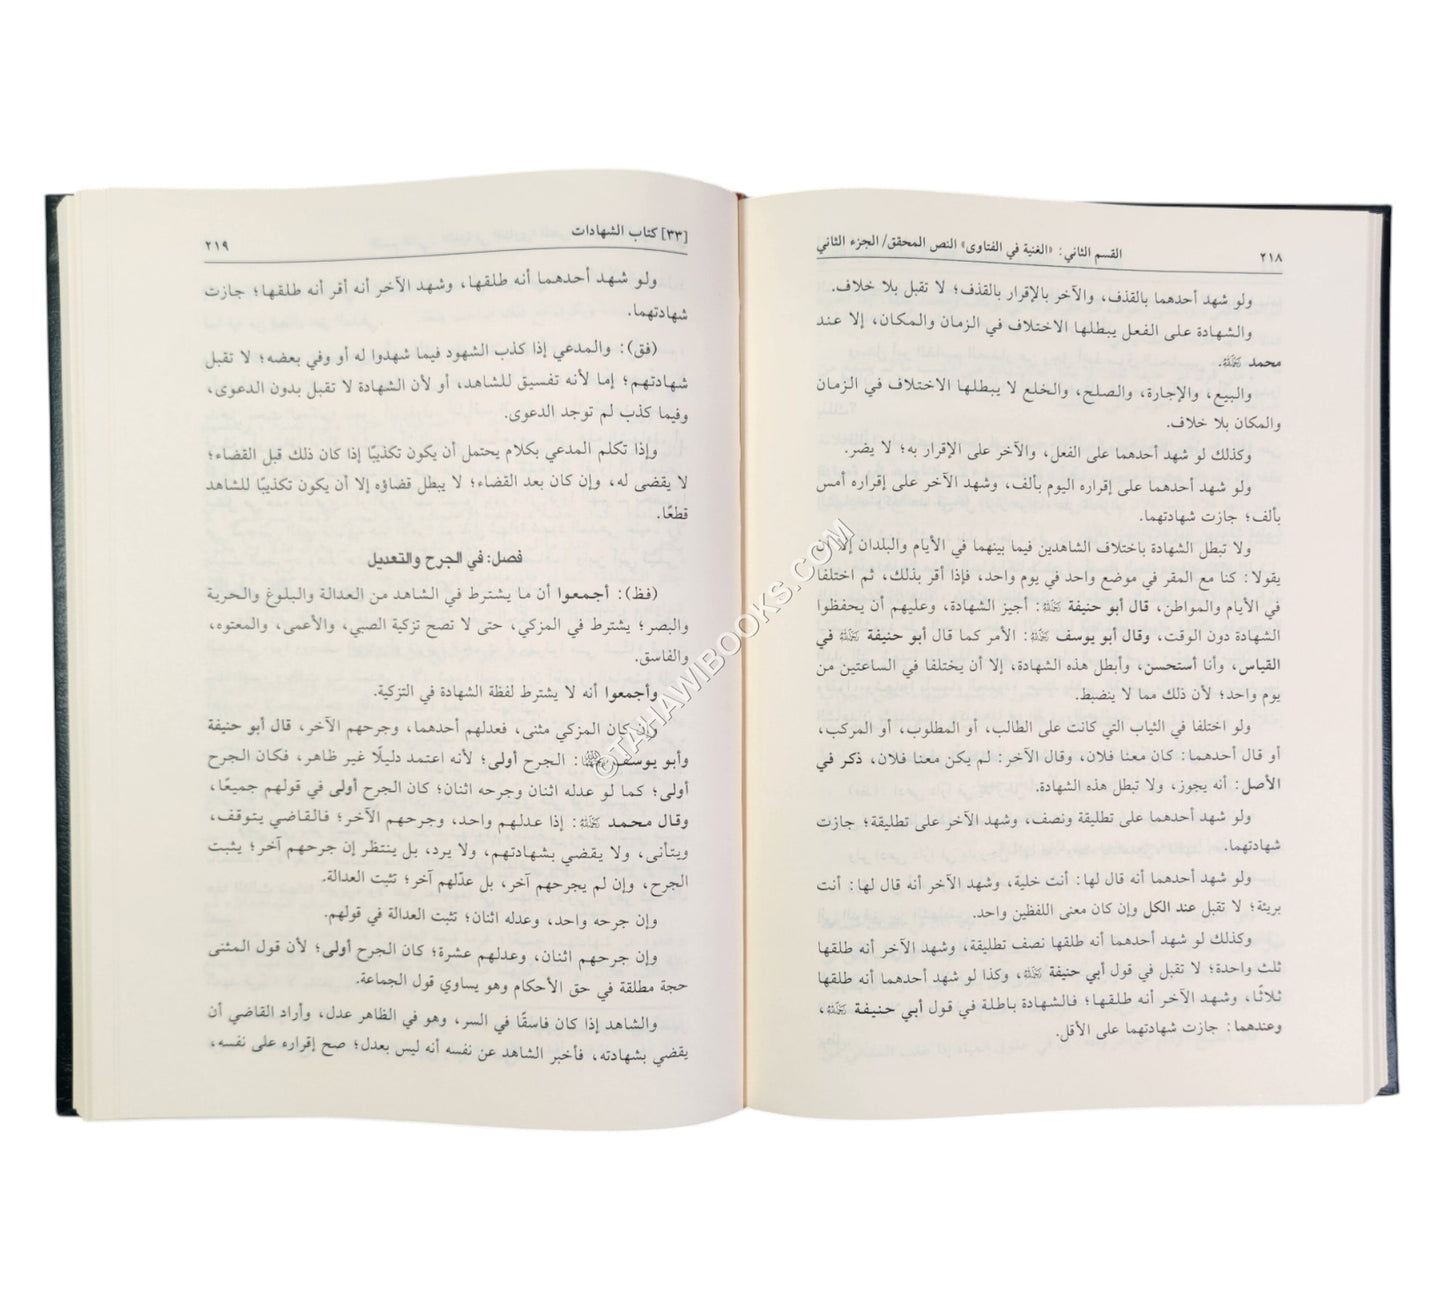 القسم الثاني: «الغنية في الفتاوى» النص المحقق/ الجزء الثاني ٢١٨
ولو شهد أحدهما بالقذف، والآخر بالإقرار بالقذف؛ لا تقبل بلا خلاف.
والشهادة على الفعل يبطلها الاختلاف في الزمان والمكان، إلا عند
محمد رحمه الله.
والبيع، والإجارة، والصلح، والخلع لا يبطلها الاختلاف في الزمان
والمكان بلا خلاف.
وكذلك لو شهد أحدهما على الفعل، والآخر على الإقرار به؛ لا يضر.
ولو شهد أحدهما على إقراره اليوم بألف، وشهد الآخر على إقراره أمس
بألف؛ جازت شهادتهما.
ولا تبطل الشهادة باختلاف الشاهدين فيما بينهما في الأيام والبلدان إلا أن
يقولا: كنا مع المقر في موضع واحد في يوم واحد، فإذا أقر بذلك، ثم اختلفا
في الأيام والمواطن، قال أبو حنيفة رحمه الله: أجيز الشهادة، وعليهم أن يحفظوا
الشهادة دون الوقت، وقال أبو يوسف رحمه الله: الأمر كما قال أبو حنيفة رحمه الله في
القياس، وأنا أستحسن، وأبطل هذه الشهادة، إلا أن يختلفا في الساعتين من
يوم واحد؛ لأن ذلك مما لا ينضبط.
ولو اختلفا في الثياب التي كانت على الطالب، أو المطلوب، أو المركب،
أو قال أحدهما: كان معنا فلان، وقال الآخر: لم يكن معنا فلان، ذكر في
الأصل: أنه يجوز، ولا تبطل هذه الشهادة.
ولو شهد أحدهما على تطليقة ونصف، وشهد الآخر على تطليقة؛ جازت
شهادتهما.
ولو شهد أحدهما أنه قال لها: أنت خلية، وشهد الآخر أنه قال لها: أنت
بريئة؛ لا تقبل عند الكل وإن كان معنى اللفظين واحد.
وكذلك لو شهد أحدهما أنه طلقها نصف تطليقة، وشهد الآخر أنه طلقها
ثلث واحدة؛ لا تقبل في قول أبي حنيفة رحمه الله، وكذا لو شهد أحدهما أنه طلقها
ثلاثًا، وشهد الآخر أنه طلقها؛ فالشهادة باطلة في قول أبي حنيفة رحمه الله،
وعندهما: جازت شهادتهما على الأقل.
[٣٣] كتاب الشهادات ٢١٩
ولو شهد أحدهما أنه طلقها، وشهد الآخر أنه أقر أنه طلقها؛ جازت
شهادتهما.
(فق): والمدعي إذا كذب الشهود فيما شهدوا له أو وفي بعضه؛ لا تقبل
شهادتهم؛ إما لأنه تفسيق للشاهد، أو لأن الشهادة لا تقبل بدون الدعوى،
وفيما كذب لم توجد الدعوى.
وإذا تكلم المدعي بكلام يحتمل أن يكون تكذيبًا إذا كان ذلك قبل القضاء؛
لا يقضى له، وإن كان بعد القضاء؛ لا يبطل قضاؤه إلا أن يكون تكذيبًا للشاهد
قطعًا.
فصل: في الجرح والتعديل
(فظ): أجمعوا أن ما يشترط في الشاهد من العدالة والبلوغ والحرية
والبصر؛ يشترط في المزكي، حتى لا تصح تزكية الصبي، والأعمى، والمعتوه،
والفاسق.
وأجمعوا أنه لا يشترط لفظة الشهادة في التزكية.
وإن كان المزكي مثنى، فعدلهم أحدهما، وجرحهم الآخر، قال أبو حنيفة
وأبو يوسف: الجرح أولى؛ لأنه اعتمد دليلًا غير ظاهر، فكان الجرح
أولى؛ كما لو عدله اثنان وجرحه اثنان؛ كان الجرح أولى في قولهم جميعًا،
وقال محمد رحمه الله: إذا عدلهم واحد، وجرحهم الآخر؛ فالقاضي يتوقف،
ويتأنى، ولا يقضي بشهادتهم، ولا يرد، بل ينتظر إن جرحهم آخر؛ يثبت
الجرح، وإن لم يجرحهم آخر، بل عدّلهم آخر؛ تثبت العدالة.
وإن جرحه واحد، وعدله اثنان؛ تثبت العدالة في قولهم.
وإن جرحهم اثنان، وعدلهم عشرة؛ كان الجرح أولى؛ لأن قول المثنى
حجة مطلقة في حق الأحكام وهو يساوي قول الجماعة.
والشاهد إذا كان فاسقًا في السر، وهو في الظاهر عدل، وأراد القاضي أن
يقضي بشهادته، فأخبر الشاهد عن نفسه أنه ليس بعدل؛ صح إقراره على نفسه،
©TAHAWIBOOKS.COM